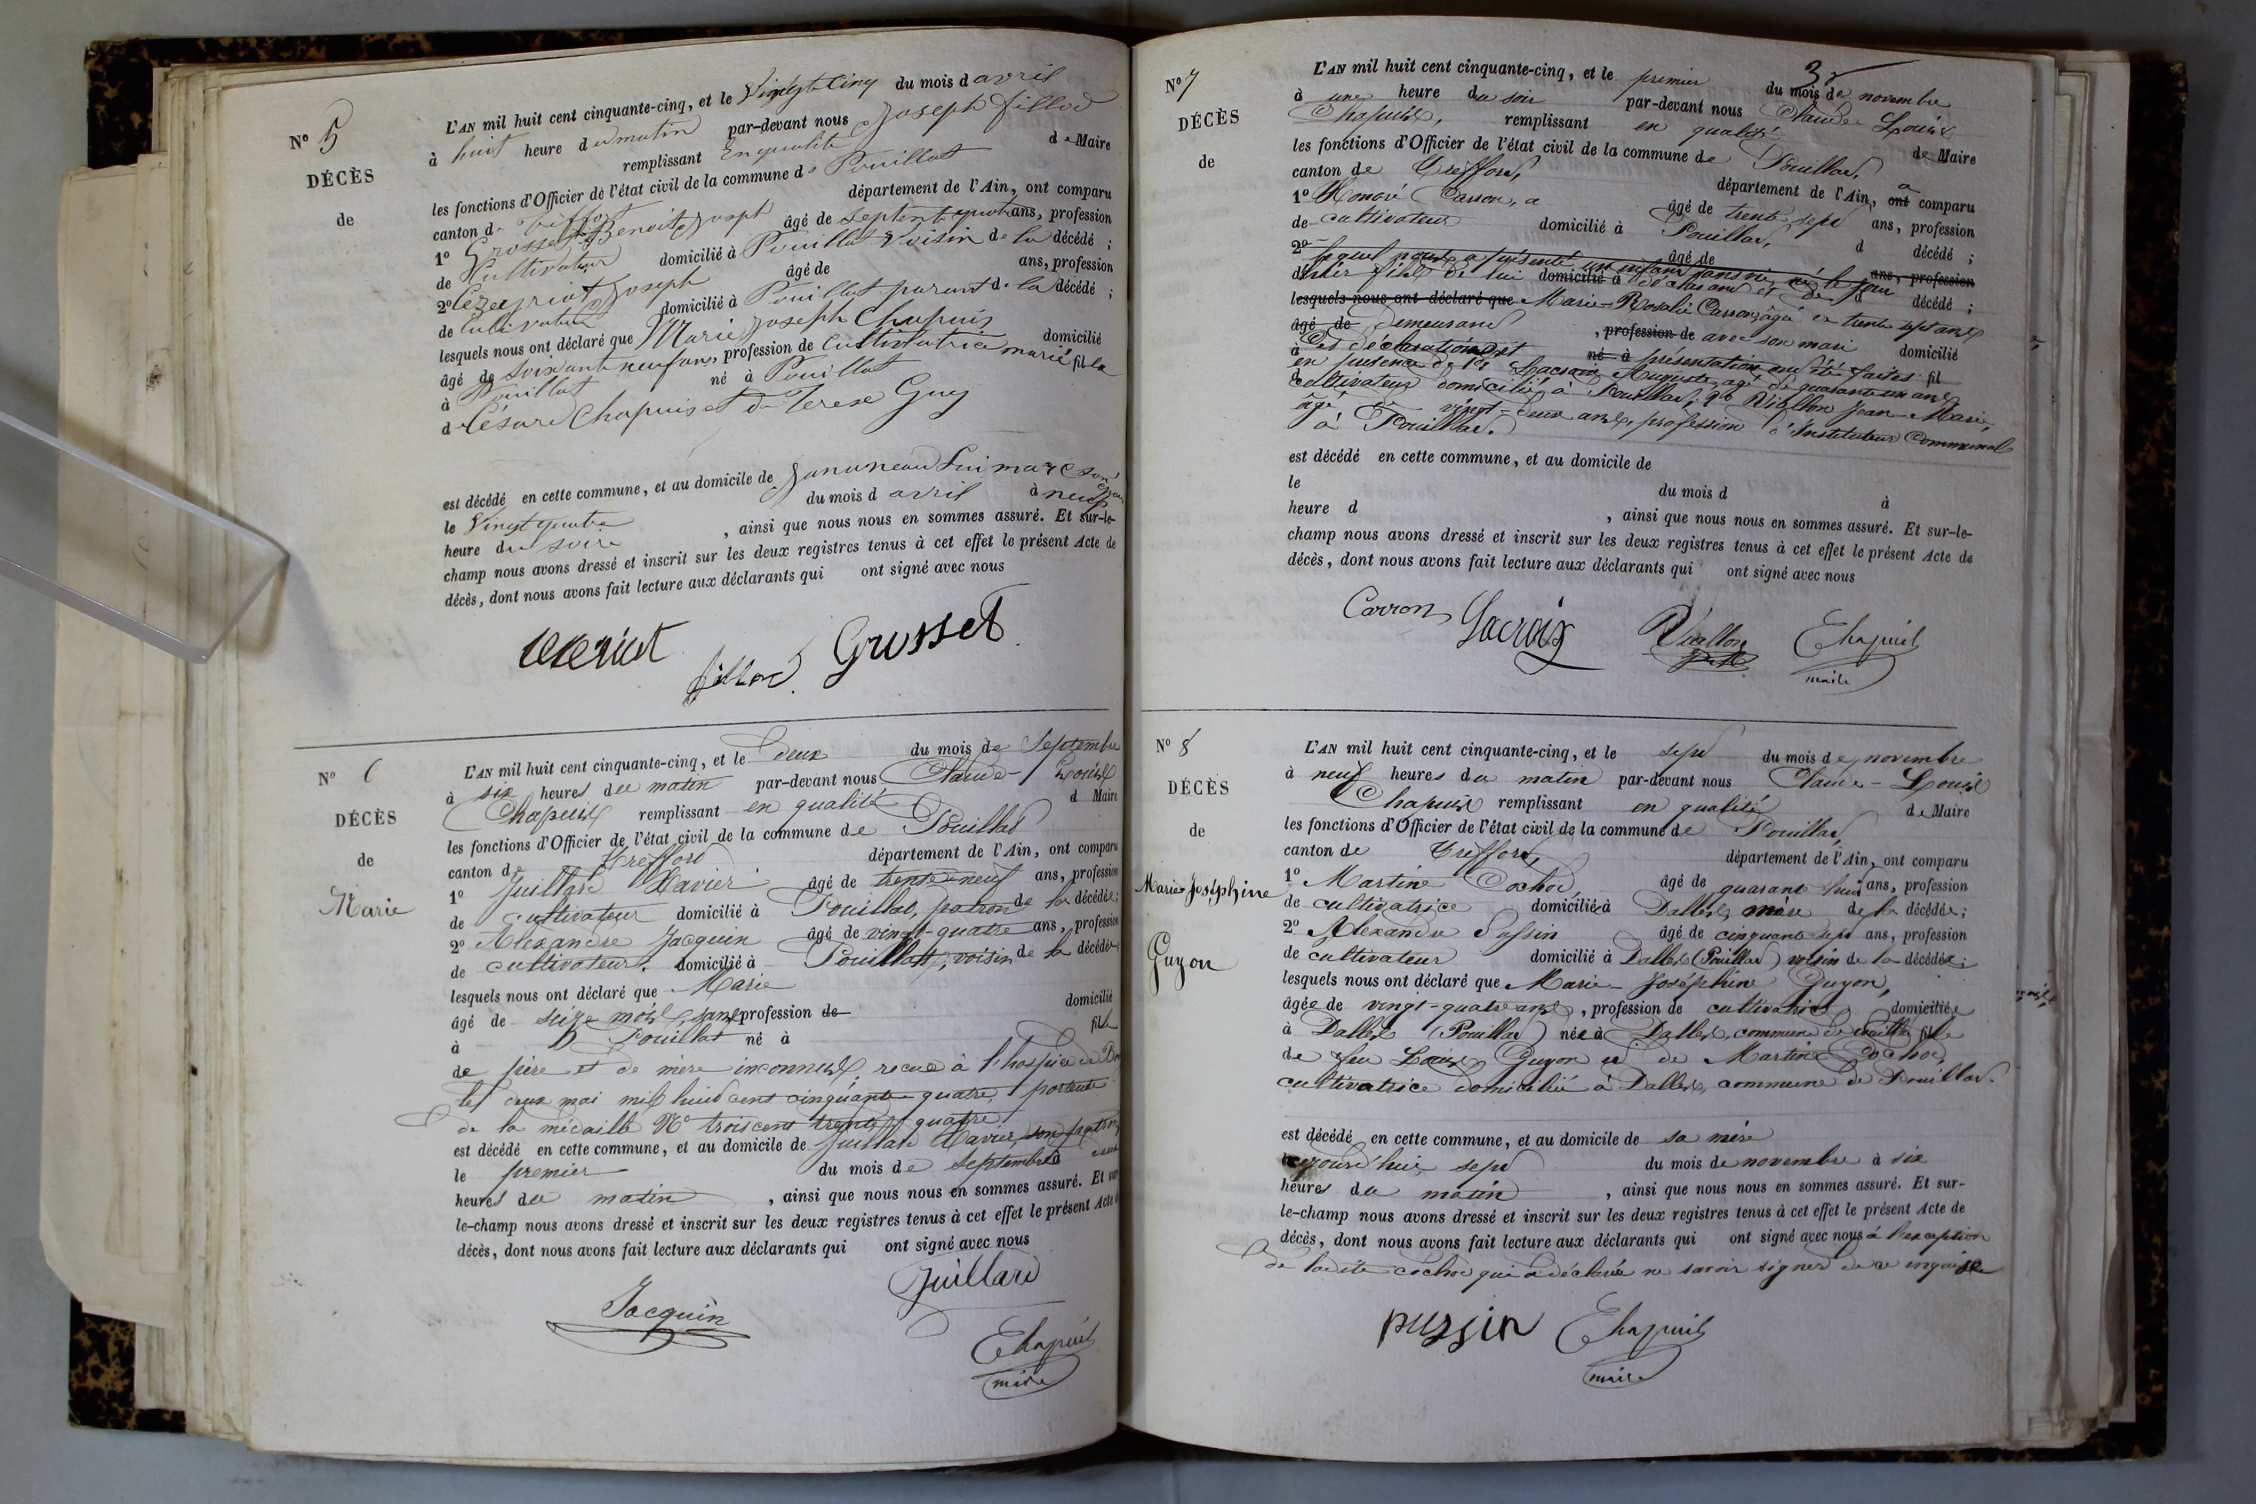 N° 5
DÉCÈS
de
L'AN mil huit cent cinquante-cinq, et le Vingt Cinq du mois d avril
à huit heure du matin par-devant nous Joseph fillod
remplissant En qualité de Maire
les fonctions d'Officier de l'état civil de la commune de Pouillat
canton de treffort département de l'Ain, ont comparu
1° Grosset Benoit Joseph âgé de septente quatre ans, profession
de Cultivateur domicilié à Pouillat Voisin de la décédé ;
2° Cezeyriat Joseph âgé de ans, profession
de Cultivateur domicilié à Pouillat parent de la décédé ;
lesquels nous ont déclaré que Marie Joseph Chapuis
âgé de Soixante neuf ans, profession de Cultivatrice marié domicilié
à Pouillat né à Pouillat fil la
d Césare Chapuis et de Terese Guy
est décédé en cette commune, et au domicile de Jananneau Luimarc son époux
le Vingt quatre du mois d avril à neuf
heure du soire , ainsi que nous nous en sommes assuré. Et sur-le-
champ nous avons dressé et inscrit sur les deux registres tenus à cet effet le présent Acte de
décès, dont nous avons fait lecture aux déclarants qui ont signé avec nous
fillod Grosset
N° 6
DÉCÈS
de
Marie
L'AN mil huit cent cinquante-cinq, et le deux du mois de Septembre
à six heures du matin par-devant nous Claude-Louis
Chapuis remplissant en qualité d Maire
les fonctions d'Officier de l'état civil de la commune de Pouillat
canton de Treffort département de l'Ain, ont comparu
1° Juillard Xavier âgé de trente-neuf ans, profession
de cultivateur domicilié à Pouillat, patron de la décédée ;
2° Alexandre Jacquin âgé de vingt-quatre ans, profession
de cultivateur domicilié à Pouillat, voisin de la décédée
lesquels nous ont déclaré que Marie
âgé de seize mois, sans profession de domicilié
à Pouillat né à fille
de père et de mère inconnus, recue à l'hospice de
le deux mai mil huit cent cinquante-quatre, portant
de la médaille N° trois cent trente quatre
est décédé en cette commune, et au domicile de Juillard Xavier, son patron
le premier du mois de Septembre à
heures du matin , ainsi que nous nous en sommes assuré. Et sur
le-champ nous avons dressé et inscrit sur les deux registres tenus à cet effet le présent Acte
décès, dont nous avons fait lecture aux déclarants qui ont signé avec nous
Juillard
Jacquin
Chapuis
maire
N° 7
DÉCÈS
de
L'AN mil huit cent cinquante-cinq, et le premier du mois de novembre
à une heure du soir par-devant nous Claude Louis
Chapuis, remplissant en qualité de Maire
les fonctions d'Officier de l'état civil de la commune de Pouillat,
canton de Treffort, département de l'Ain, ont a comparu
1° Honoré Carron, âgé de trente sept ans, profession
de cultivateur domicilié à Pouillat, d décédé ;
2° lequel nous a présenté un enfant sans vie, né le jour âgé de ans, profession
d'hier fils de lui domicilié à déclarant et de d décédé ;
lesquels nous ont déclaré que Marie-Rosalie Carron, âgée de trente sept ans
âgé de demeurant , profession de avec son mari domicilié
à Les déclaration et né à présentation ont été faites fil
en présence de 1° Lacroix Auguste, âgé de quarante un ans
cultivateur domicilié à Pouillat, 2° Viallon Jean-Marie,
âgé de vingt-deux ans, profession d'Instituteur Communal
à Pouillat.
est décédé en cette commune, et au domicile de
le du mois d à
heure d , ainsi que nous nous en sommes assuré. Et sur-le-
champ nous avons dressé et inscrit sur les deux registres tenus à cet effet le présent Acte de
décès, dont nous avons fait lecture aux déclarants qui ont signé avec nous
Carron Lacroix Viallon Chapuis
maire
N° 8
DÉCÈS
de
Marie-Joséphine
Guyon
L'AN mil huit cent cinquante-cinq, et le sept du mois de novembre
à neuf heures du matin par-devant nous Claude-Louis
Chapuis remplissant en qualité de Maire
les fonctions d'Officier de l'état civil de la commune de Pouillat,
canton de Treffort, département de l'Ain, ont comparu
1° Martine Cochod, âgé de quarante huit ans, profession
de cultivatrice domiciliée à Dalles, mère de la décédée ;
2° Alexandre Pussin âgé de cinquante sept ans, profession
de cultivateur domicilié à Dalles (Pouillat) voisin de la décédée ;
lesquels nous ont déclaré que Marie-Joséphine Guyon,
âgée de vingt-quatre ans, profession de cultivatrice domiciliée
à Dalles (Pouillat) née à Dalles, commune de Pouillat fille
de feu Louis Guyon et de Martine Cochod,
cultivatrice domiciliée à Dalles, commune de Pouillat.
est décédé en cette commune, et au domicile de sa mère
cejourd'hui sept du mois de novembre à six
heures du matin , ainsi que nous nous en sommes assuré. Et sur-
le-champ nous avons dressé et inscrit sur les deux registres tenus à cet effet le présent Acte de
décès, dont nous avons fait lecture aux déclarants qui ont signé avec nous à l'exception
de ladite Cochod qui a déclarée ne savoir signer de ce enquise
pussin Chapuis
maire